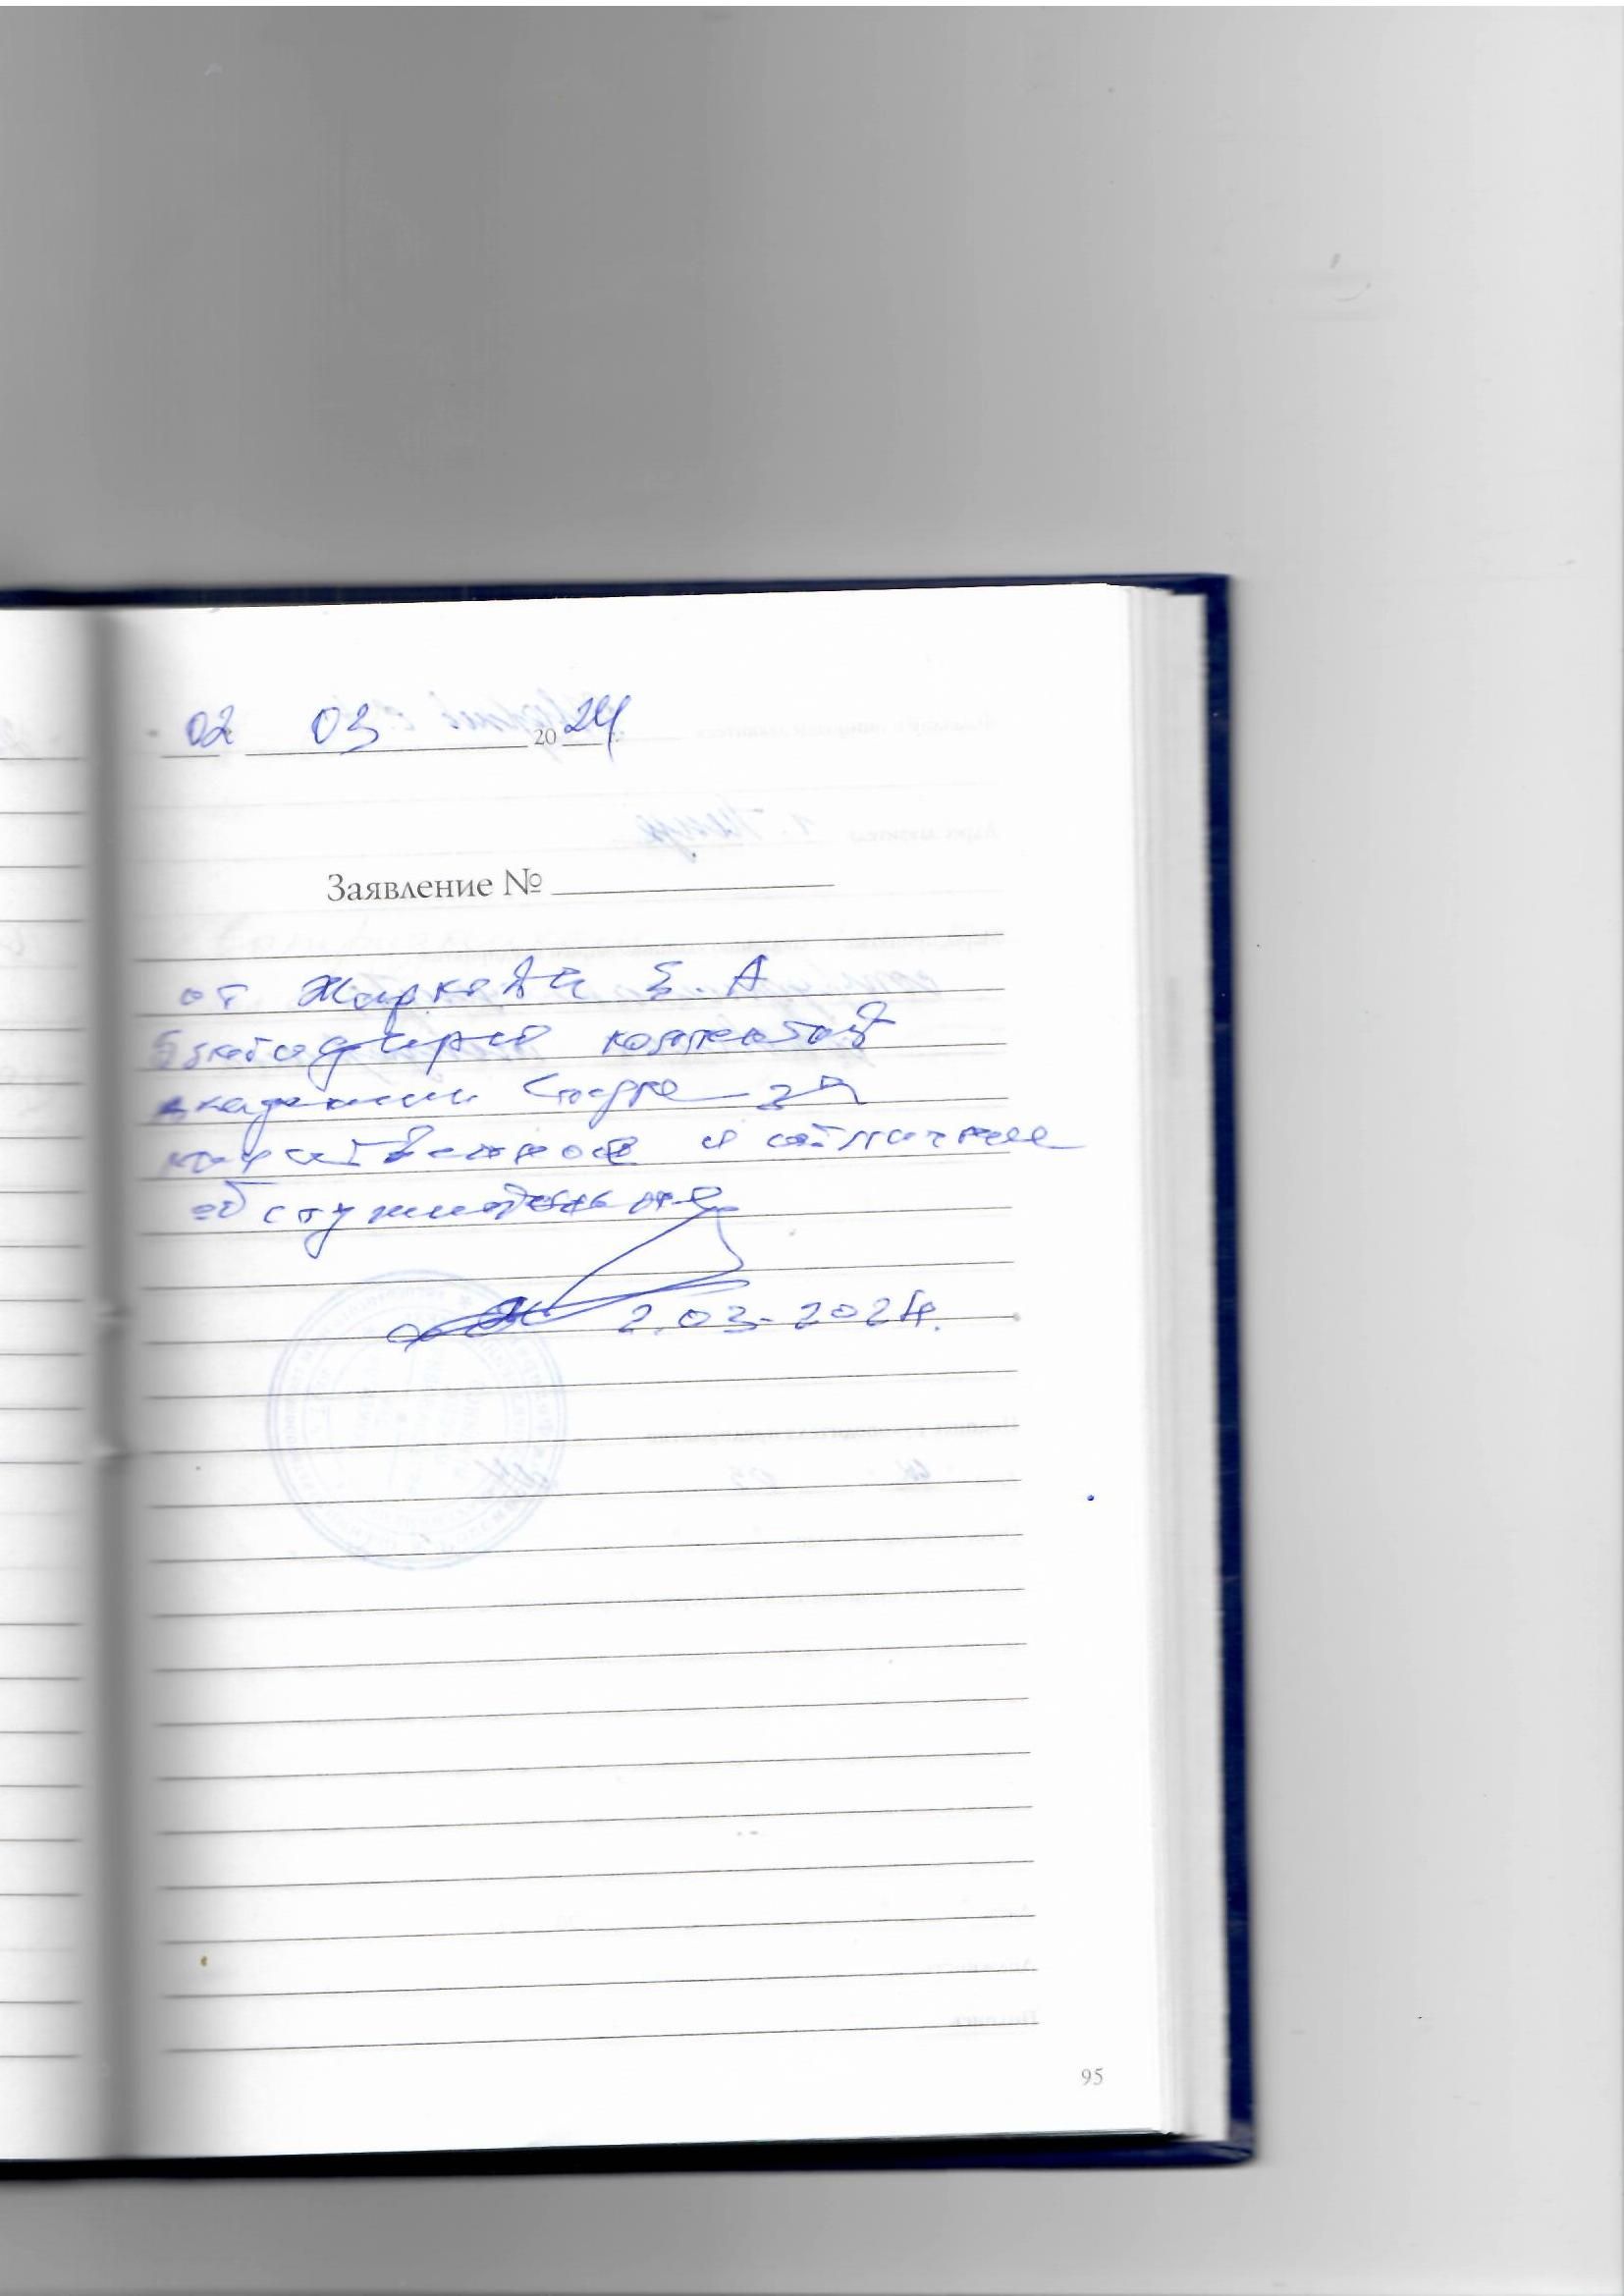 02 03 2024
Заявление №
от Е. А
Благодарю коллектив
академии Спорта за
качественное и отличное
обслуживание
2.03.2024.
95